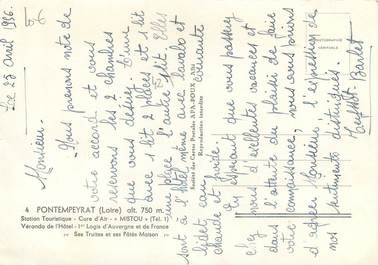 Le 23 avril 1956.
Monsieur.
Nous prenons note de
votre accord et vous
réservons les 2 chambres
que vous désirez. L'une
avec 1 lit 2 places et 1 lit
une place. l'autre 1 petit. Elles
sont à l'hôtel même avec lavabo et
bidet, eau courante
chaude et froide.
En espérant que vous passerez
chez nous d'excellentes vacances et
dans l'attente du plaisir de faire
votre connaissance, nous vous prions
d'agréer Monsieur, l'expression de
nos sentiments distingués.
Barlet
4 PONTEMPEYRAT (Loire) alt. 750 m.
Station Touristique - Cure d'Air - « MISTOU » (Tél. 1)
Véranda de l'Hôtel - 1er Logis d'Auvergne et de France
Ses Truites et ses Pâtés Maison
Société des Cartes Postales APA-POUX - ALBI
Reproduction interdite